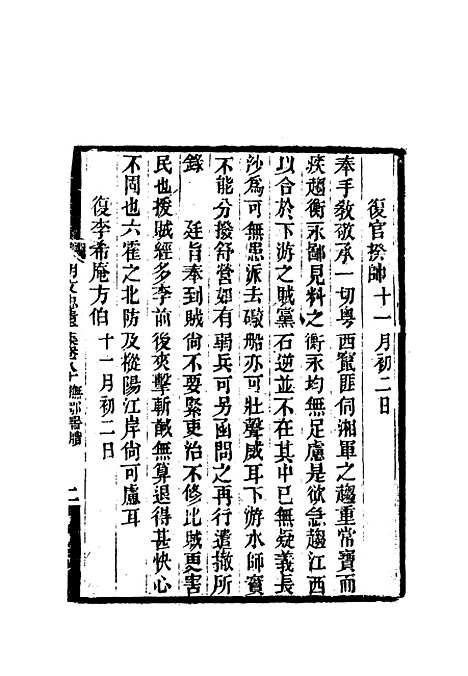 復官揆帥十一月初二日
奉手敎敬承一切粤西竄匪伺湘軍之趨重常寶而
疾趨衡永鄙見料之衡永均無足慮是欲急趨江西
以合於下游之賊黨石逆並不在其中已無疑義長
沙爲可無患派去礮船亦可壯聲威耳下游水師實
不能分撥舒營如有弱兵可另函問之再行遣撤所
錄　廷旨奉到賊尙不要緊更治不修比賊更害
民也援賊經多李前後夾擊斬馘無算退得甚快心
不固也六霍之北防及樅陽江岸尙可慮耳
復李希庵方伯十一月初二日
胡文忠遺集卷八十撫鄂書牘　二